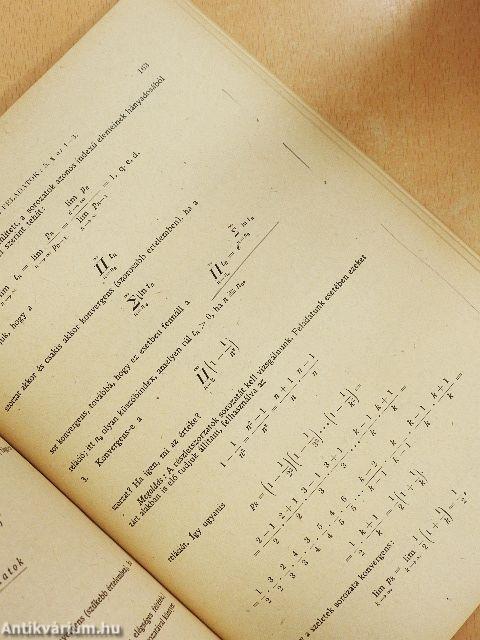 163
FELADATOK. 5. § a: 1–3.
említett, a sorozatok azonos indexű elemeinek hányadosából
szerint tehát:
lim tₙ = lim pₙ/pₙ₋₁ = lim pₙ / lim pₙ₋₁ = 1, q. e. d.
hogy a
∏ tₙ
szorzat akkor és csakis akkor konvergens (szűkebb értelemben), ha a
∑ ln tₙ
sor konvergens, továbbá, hogy ez esetben fennáll a
∏ tₙ = e^(∑ ln tₙ)
reláció; itt n₀ olyan küszöbindex, amelyen túl tₙ > 0, ha n ≧ n₀.
3. Konvergens-e a
∏ (1 − 1/n²)
szorzat? Ha igen, mi az értéke?
Megoldás: A részletszorzatok sorozatát kell vizsgálnunk. Feladatunk esetében ezeket
zárt alakban is elő tudjuk állítani, felhasználva az
1 − 1/n² = (n² − 1)/n² = (n + 1)/n · (n − 1)/n
relációt. Így ugyanis
pₖ = (1 − 1/2²)(1 − 1/3²) … (1 − 1/k²) =
= (2 − 1)/2 · (2 + 1)/2 · (3 − 1)/3 · (3 + 1)/3 … (k − 1)/k · (k + 1)/k =
= 1/2 · 3/2 · 2/3 · 4/3 · 3/4 · 5/4 · 4/5 · 6/5 … (k − 2)/(k − 1) · k/(k − 1) · (k − 1)/k · (k + 1)/k =
= 1/2 · (k + 1)/k = 1/2 (1 + 1/k),
a szeletek sorozata konvergens:
lim pₖ = lim 1/2 (1 + 1/k) = 1/2,
(szűkebb értelemben), h
elégséges
Antikvárium.hu